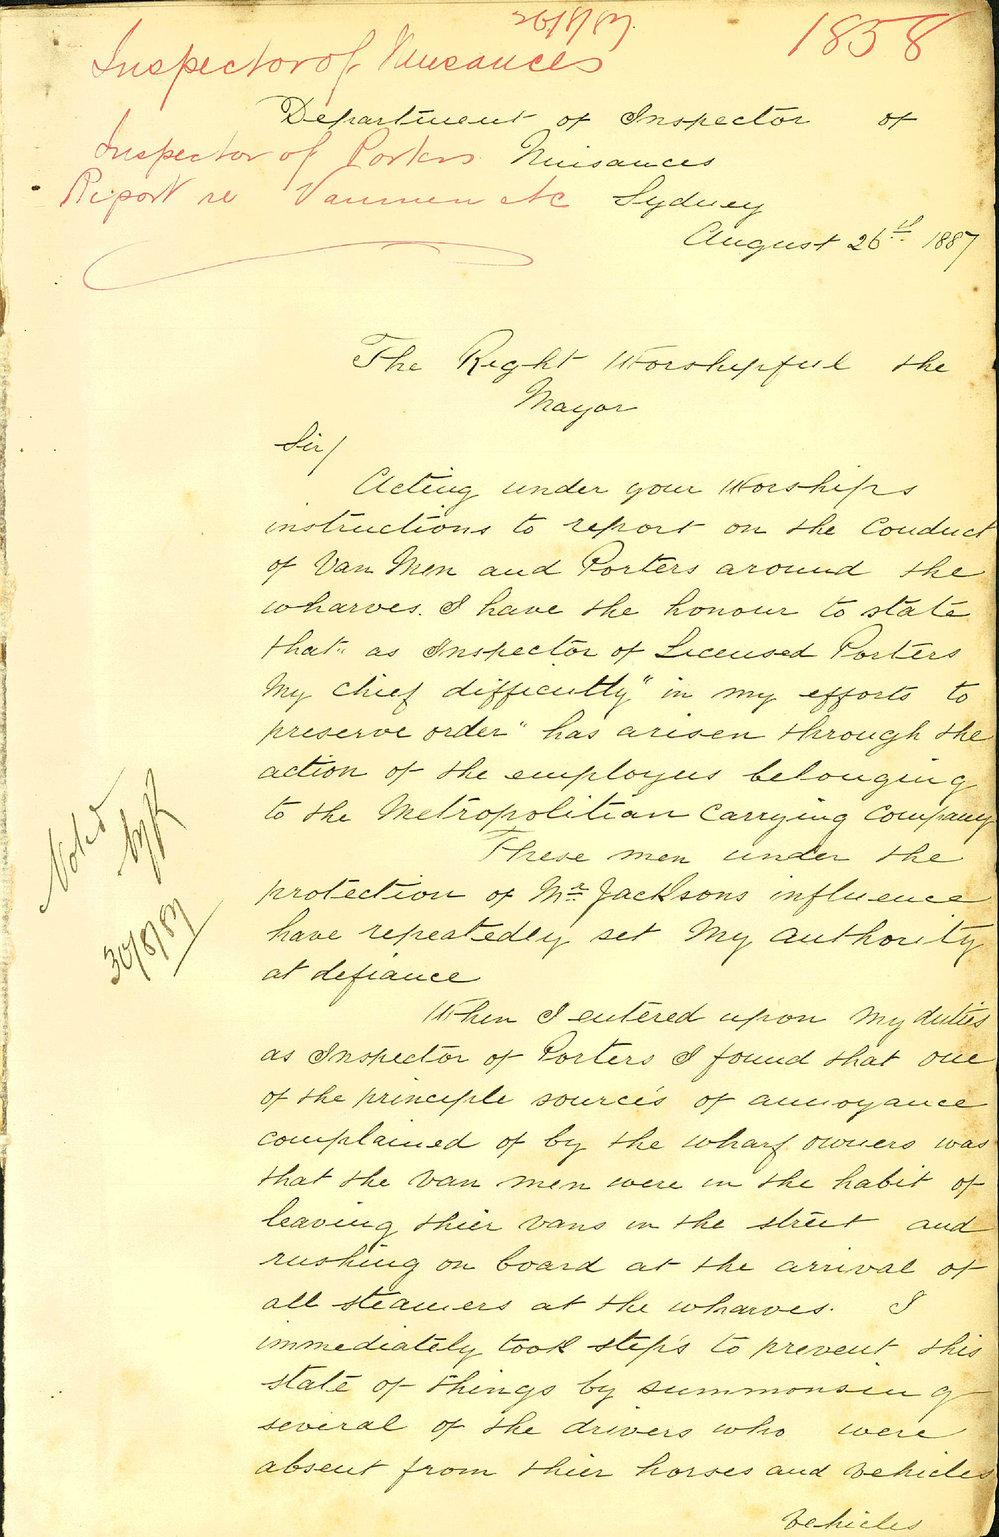 26/8/87.
1858
Inspector of Nuisances
Department of Inspector of
Inspector of Porters
Nuisances
Report re Vanmen etc
Sydney
August 26th 1887
The Right Worshipful the
Mayor
Sir/
Acting under your Worships
instructions to report on the Conduct
of Van Men and Porters around the
wharves. I have the honour to state
that" as Inspector of Licensed Porters
My chief difficutly" in my efforts to
preserve order" has arisen through the
action of the employees belonging
to the Metropolitian Carrying Company
These men under the
protection of Mr Jacksons influence
have repeatedly set My authority
at defiance
When I entered upon My duties
as Inspector of Porters I found that one
of the principle source's of annoyance
complained of by the wharf owners was
that the van men were in the habit of
leaving thier vans in the street and
rushing on board at the arrival of
all steamers at the wharves. I
immediately took step's to prevent this
state of things by summonsing
several of the drivers who were
absent from thier horses and vehicles
vehicles
Noted
30/8/87